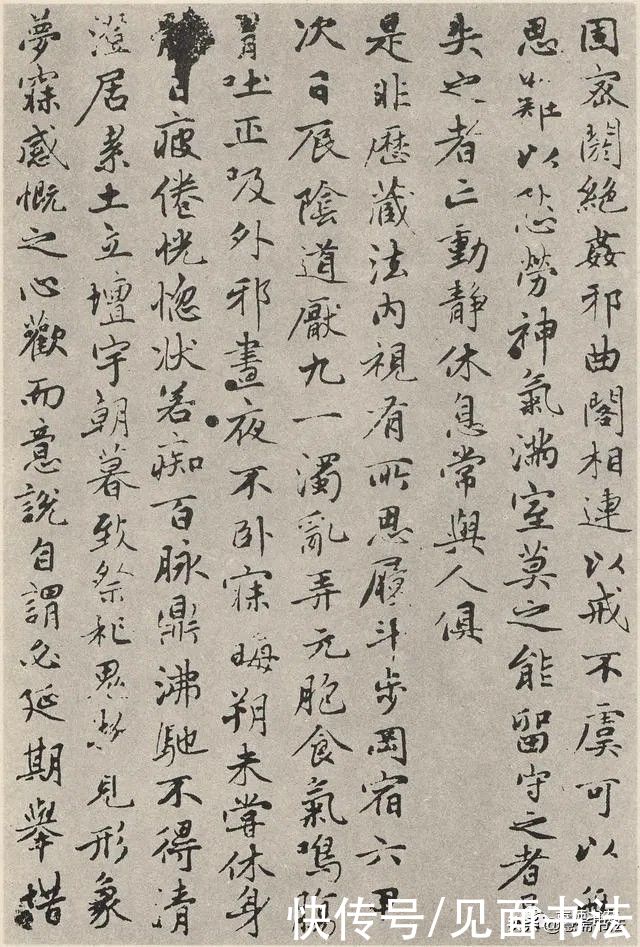 固密閼絕姦邪曲閣相連以戒不虞可以無
思難以愁勞神氣滿室莫之能留守之者
失之者亡動靜休息常與人俱
是非歷藏法內視有所思履斗步岡宿六甲
次日辰陰道厭九一濁亂弄元胞食氣鳴腸
胃吐正吸外邪晝夜不臥寐晦朔未嘗休身
日疲倦恍惚状若痴百脉鼎沸馳不得清
澄居累土立壇宇朝暮致祭祀見形象
夢寐感慨之心歡而意說自謂必延期舉措
快传号/见面书法